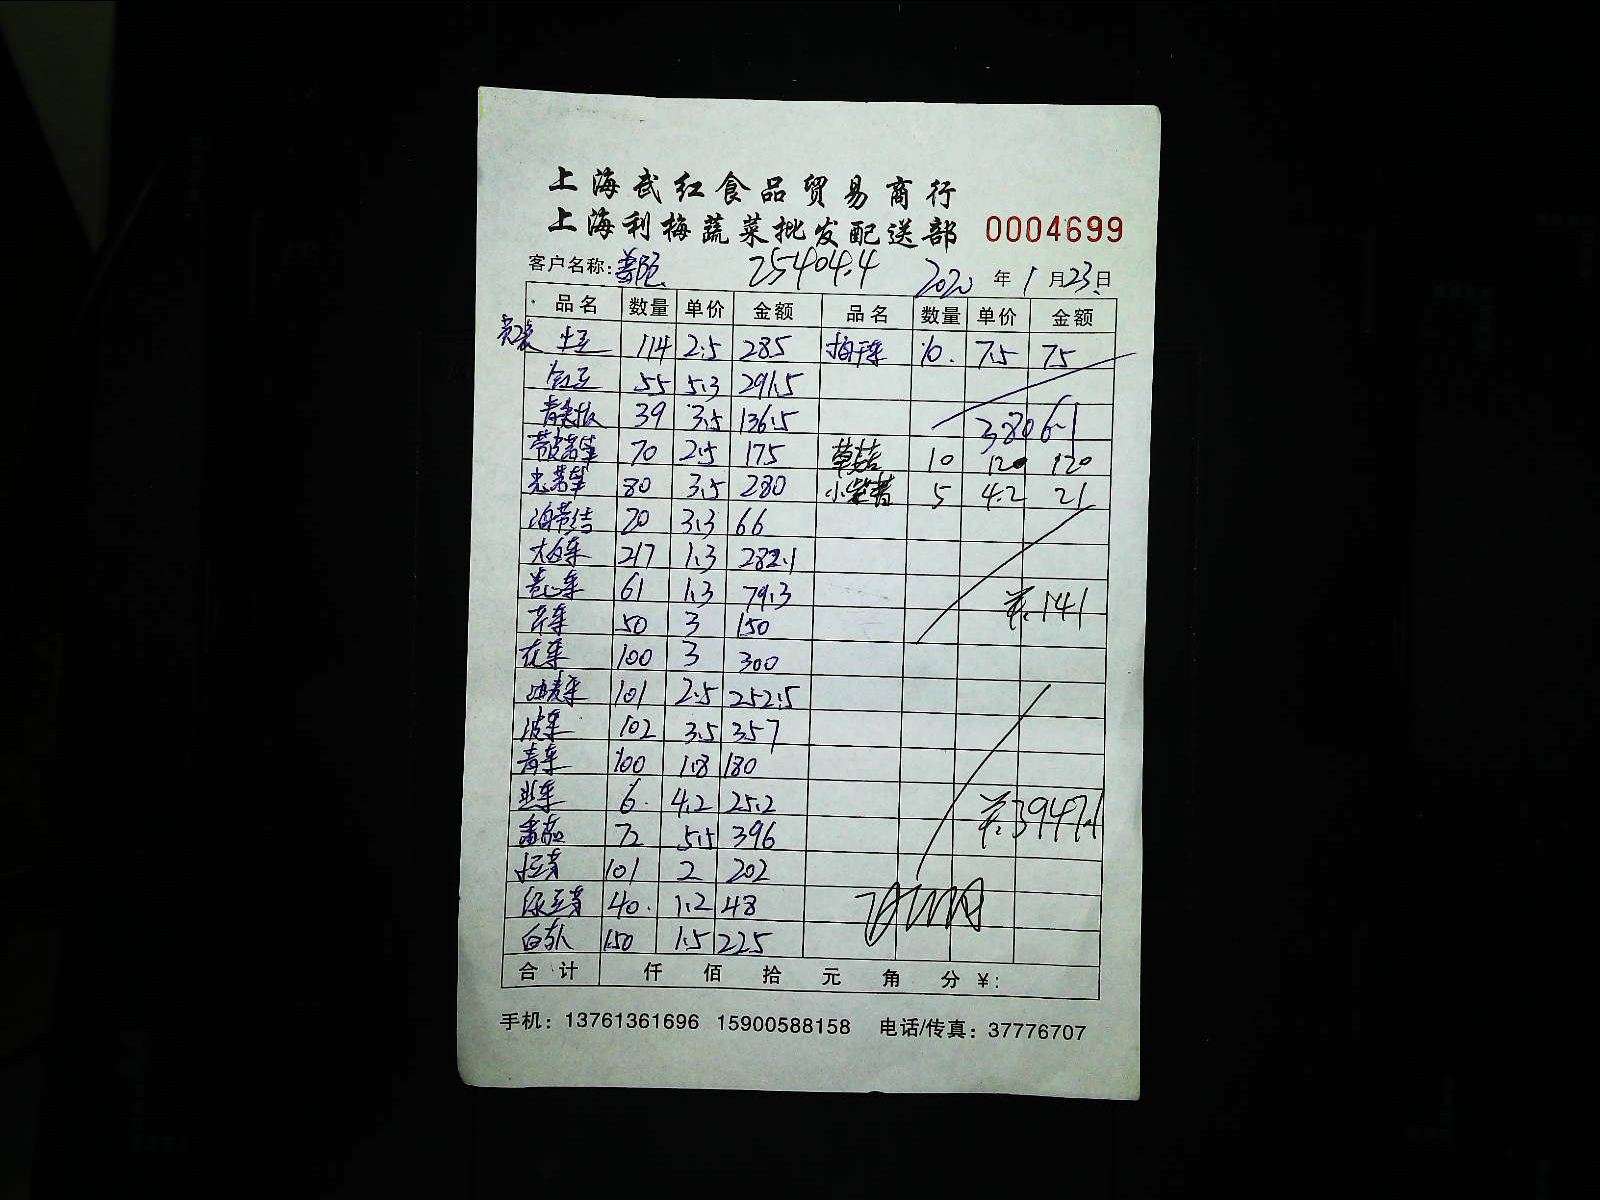 上海武红食品贸易商行
上海利梅蔬菜批发配送部 0004699
客户名称: 25404.4 2020年1月23日
品名 数量 单价 金额 品名 数量 单价 金额
土豆 114 2.5 285 10. 7.5 75
55 5.3 291.5
青尖椒 39 3.5 136.5 3806.1
70 2.5 175 草菇 10 120 120
80 3.5 280 5 4.2 21
海带结 20 3.3 66
大白菜 217 1.3 282.1
卷心菜 61 1.3 79.3 141
芹菜 50 3 150
花菜 100 3 300
油麦菜 101 2.5 252.5
菠菜 102 3.5 357
青菜 100 1.8 180
韭菜 6. 4.2 25.2 3947.1
番茄 72 5.5 396
101 2 202
绿豆芽 40. 1.2 48
白卜 150 1.5 225
合计 仟 佰 拾 元 角 分 ¥:
手机: 13761361696 15900588158 电话/传真: 37776707